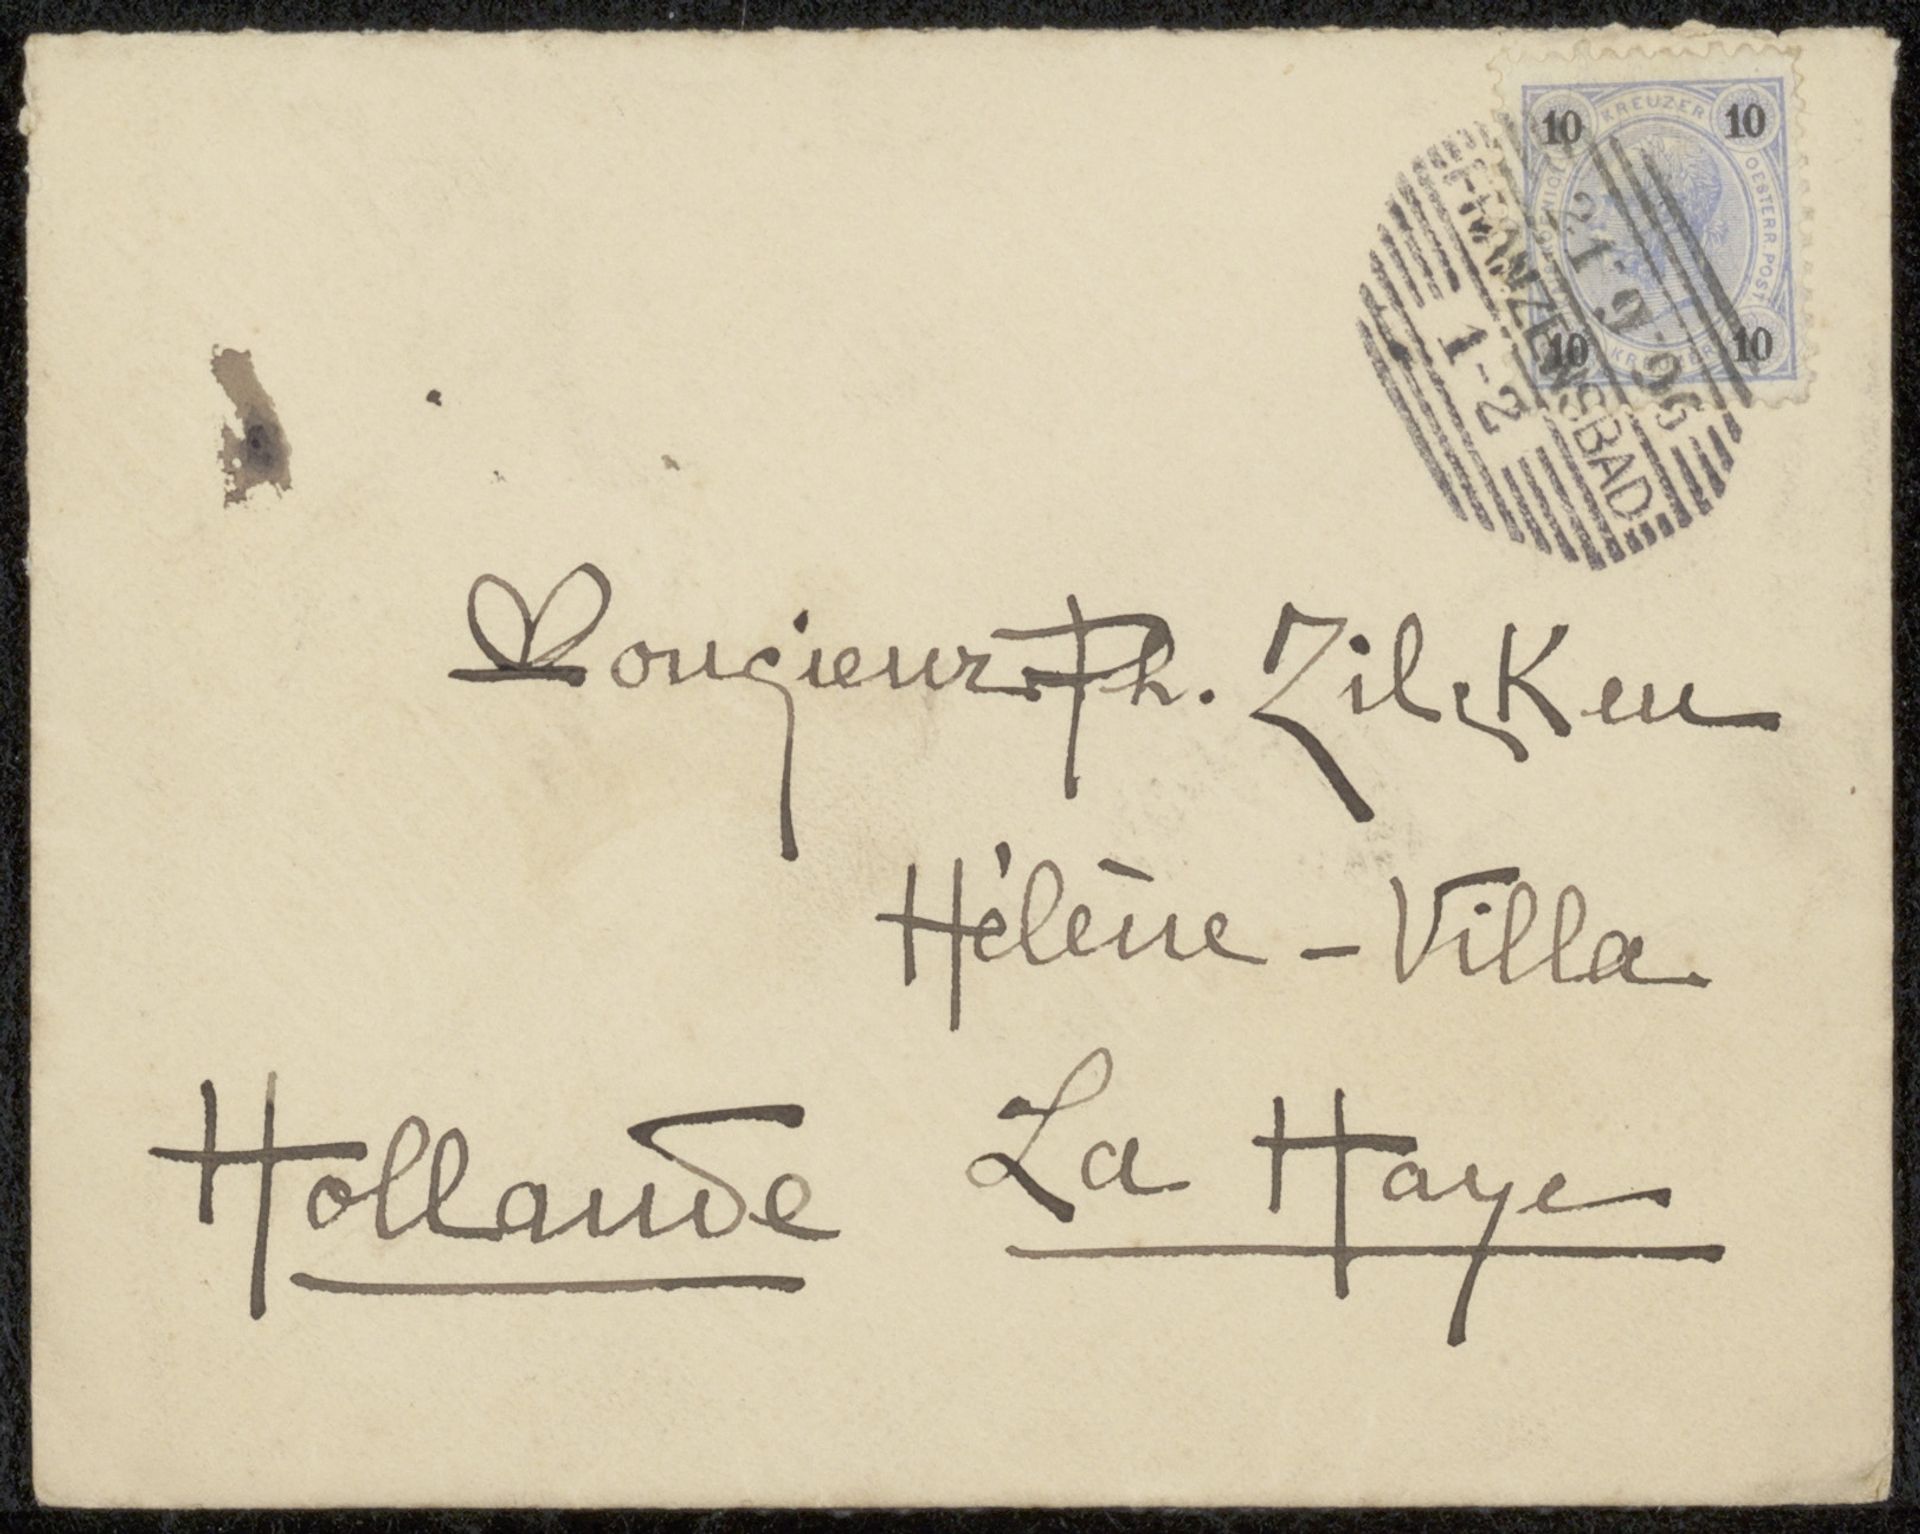 10 KREUZER 10
OESTERR. POST.
10 KREUZER 10
FRANZENSBAD
21.9.96
1-2
Monsieur Ph. Zilcken
Hélène-Villa
La Haye
Hollande